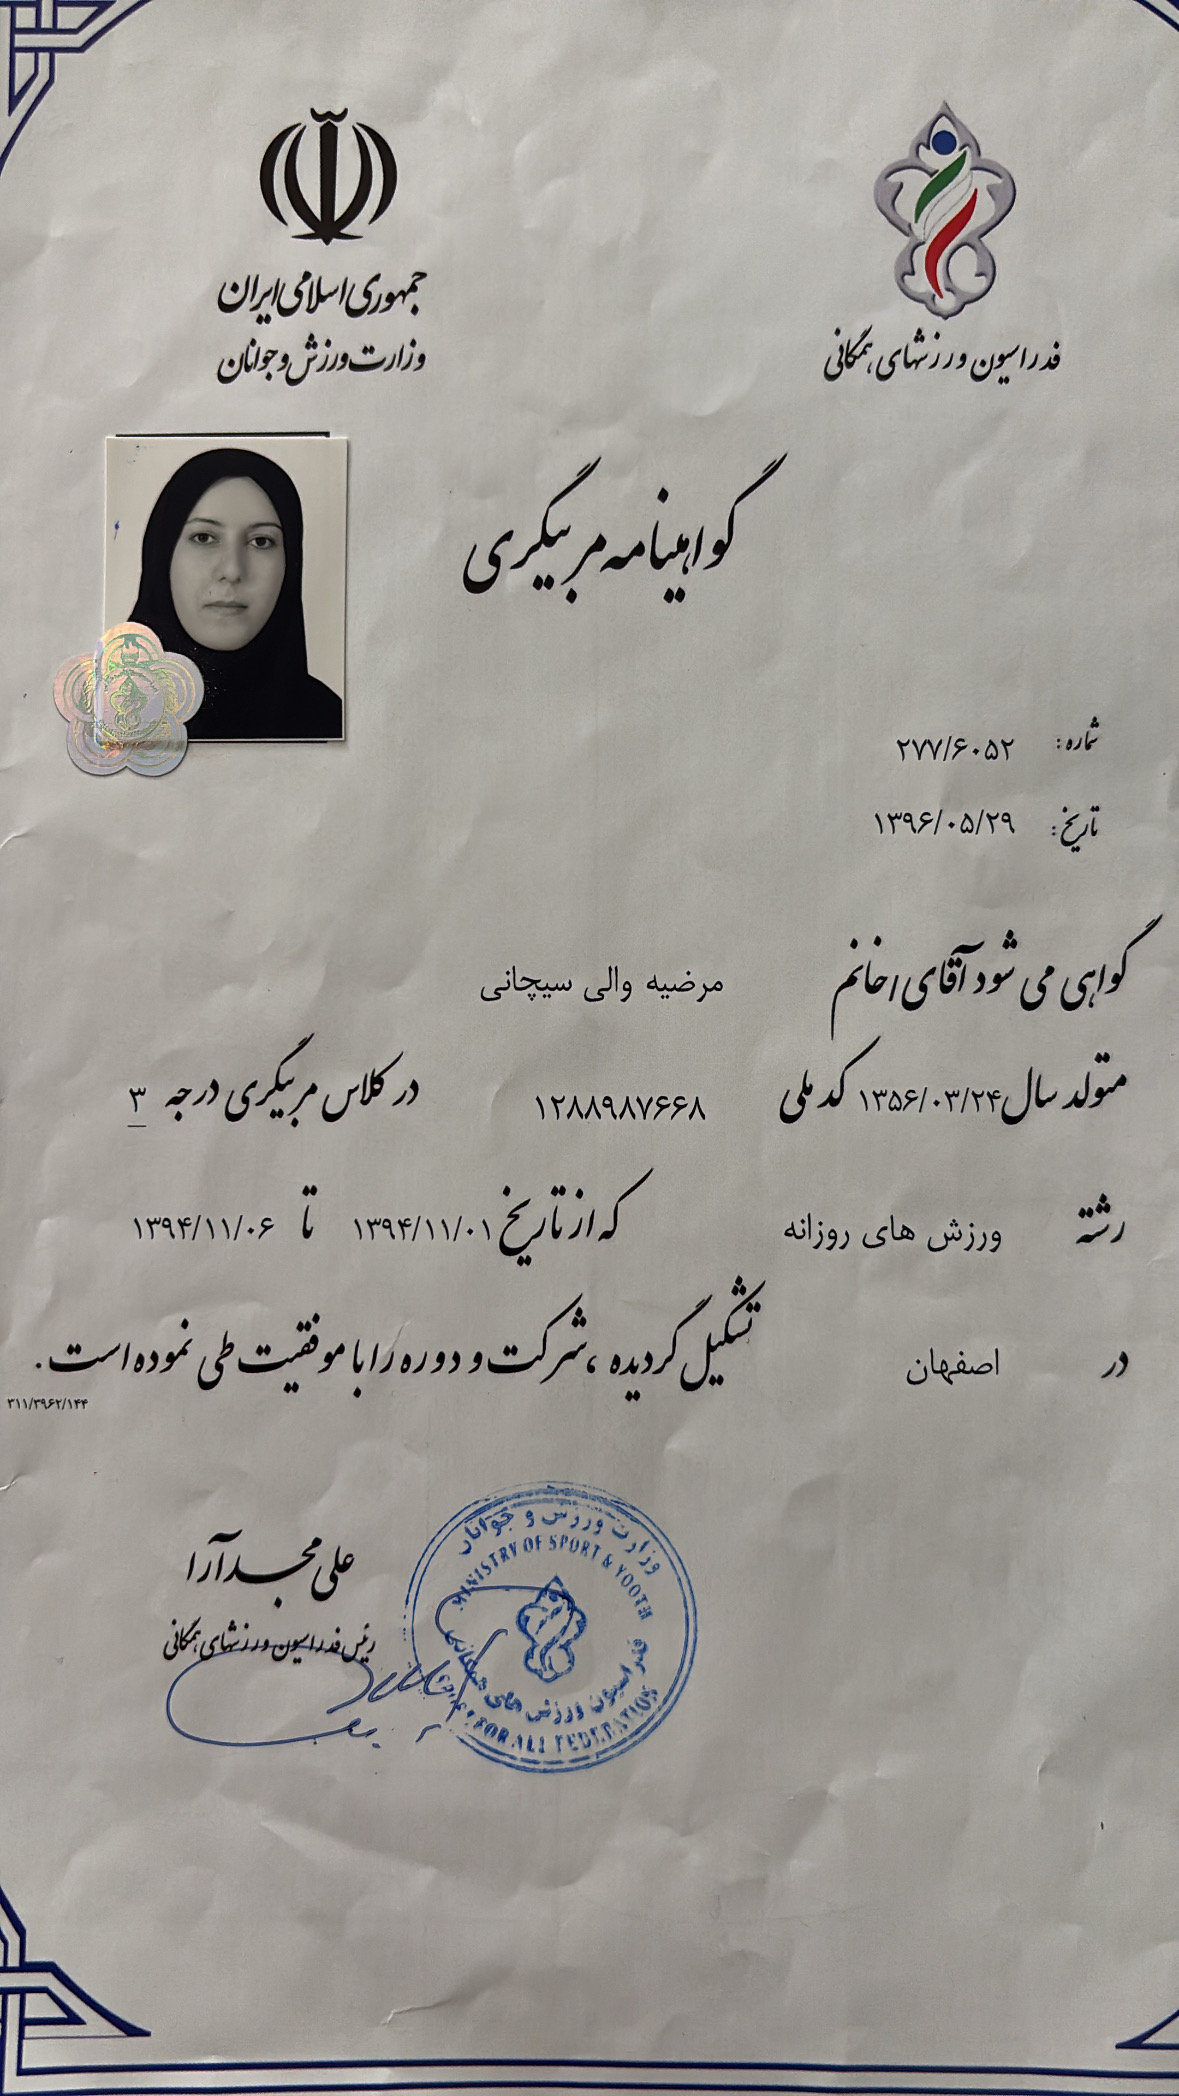 جمهوری اسلامی ایران
وزارت ورزش و جوانان
فدراسیون ورزشهای همگانی
گواهینامه مربیگری
شماره: ۲۷۷/۶۰۵۲
تاریخ: ۱۳۹۶/۰۵/۲۹
گواهی می شود آقای/خانم مرضیه والی سیچانی
متولد سال ۱۳۵۶/۰۳/۲۴ کد ملی ۱۲۸۸۹۸۷۶۶۸ در کلاس مربیگری درجه ۳
رشته ورزش های روزانه که از تاریخ ۱۳۹۴/۱۱/۰۱ تا ۱۳۹۴/۱۱/۰۶
در اصفهان تشکیل گردیده ، شرکت و دوره را با موفقیت طی نموده است .
۳۱۱/۳۹۶۲/۱۴۴
علی مجدآرا
رئیس فدراسیون ورزشهای همگانی
وزارت ورزش و جوانان
MINISTRY OF SPORT & YOUTH
فدراسیون ورزش های همگانی
FOR ALL FEDERATION